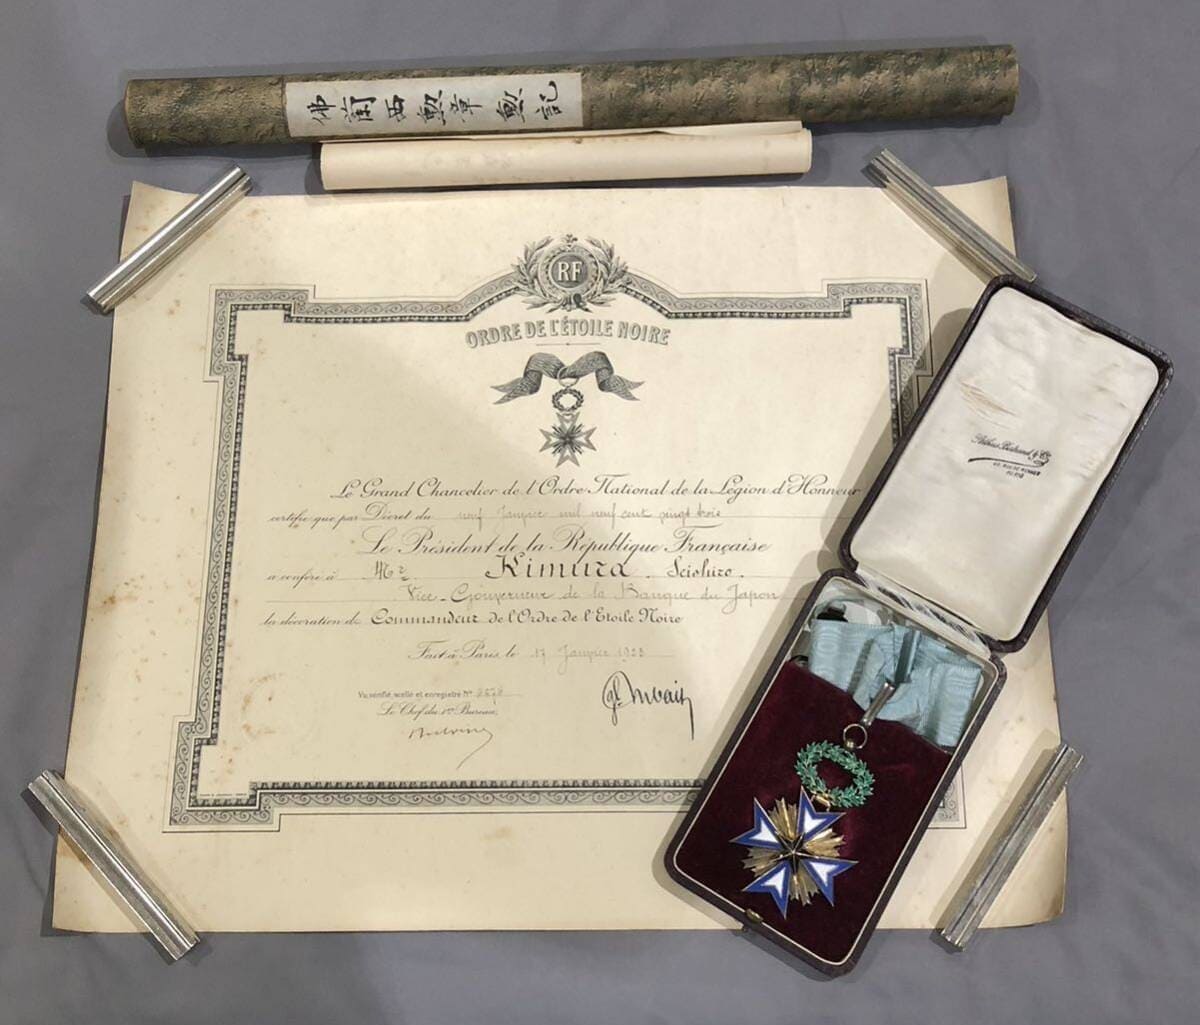 佛蘭西勲章勲記
RF
ORDRE DE L'ÉTOILE NOIRE
Le Grand Chancelier de l'Ordre National de la Légion d'Honneur
certifie que par Décret du neuf Janvier mil neuf cent vingt trois
Le Président de la République Française
a conféré à Mr Kimura Seishiro.
Vice-Gouverneur de la Banque du Japon
la décoration de Commandeur de l'Ordre de l'Etoile Noire
Fait à Paris, le 17 Janvier 1923
Vu, vérifié, scellé et enregistré No
Le Chef du 1er Bureau,
Arthus Bertrand & Cie
46, RUE DE RENNES
PARIS